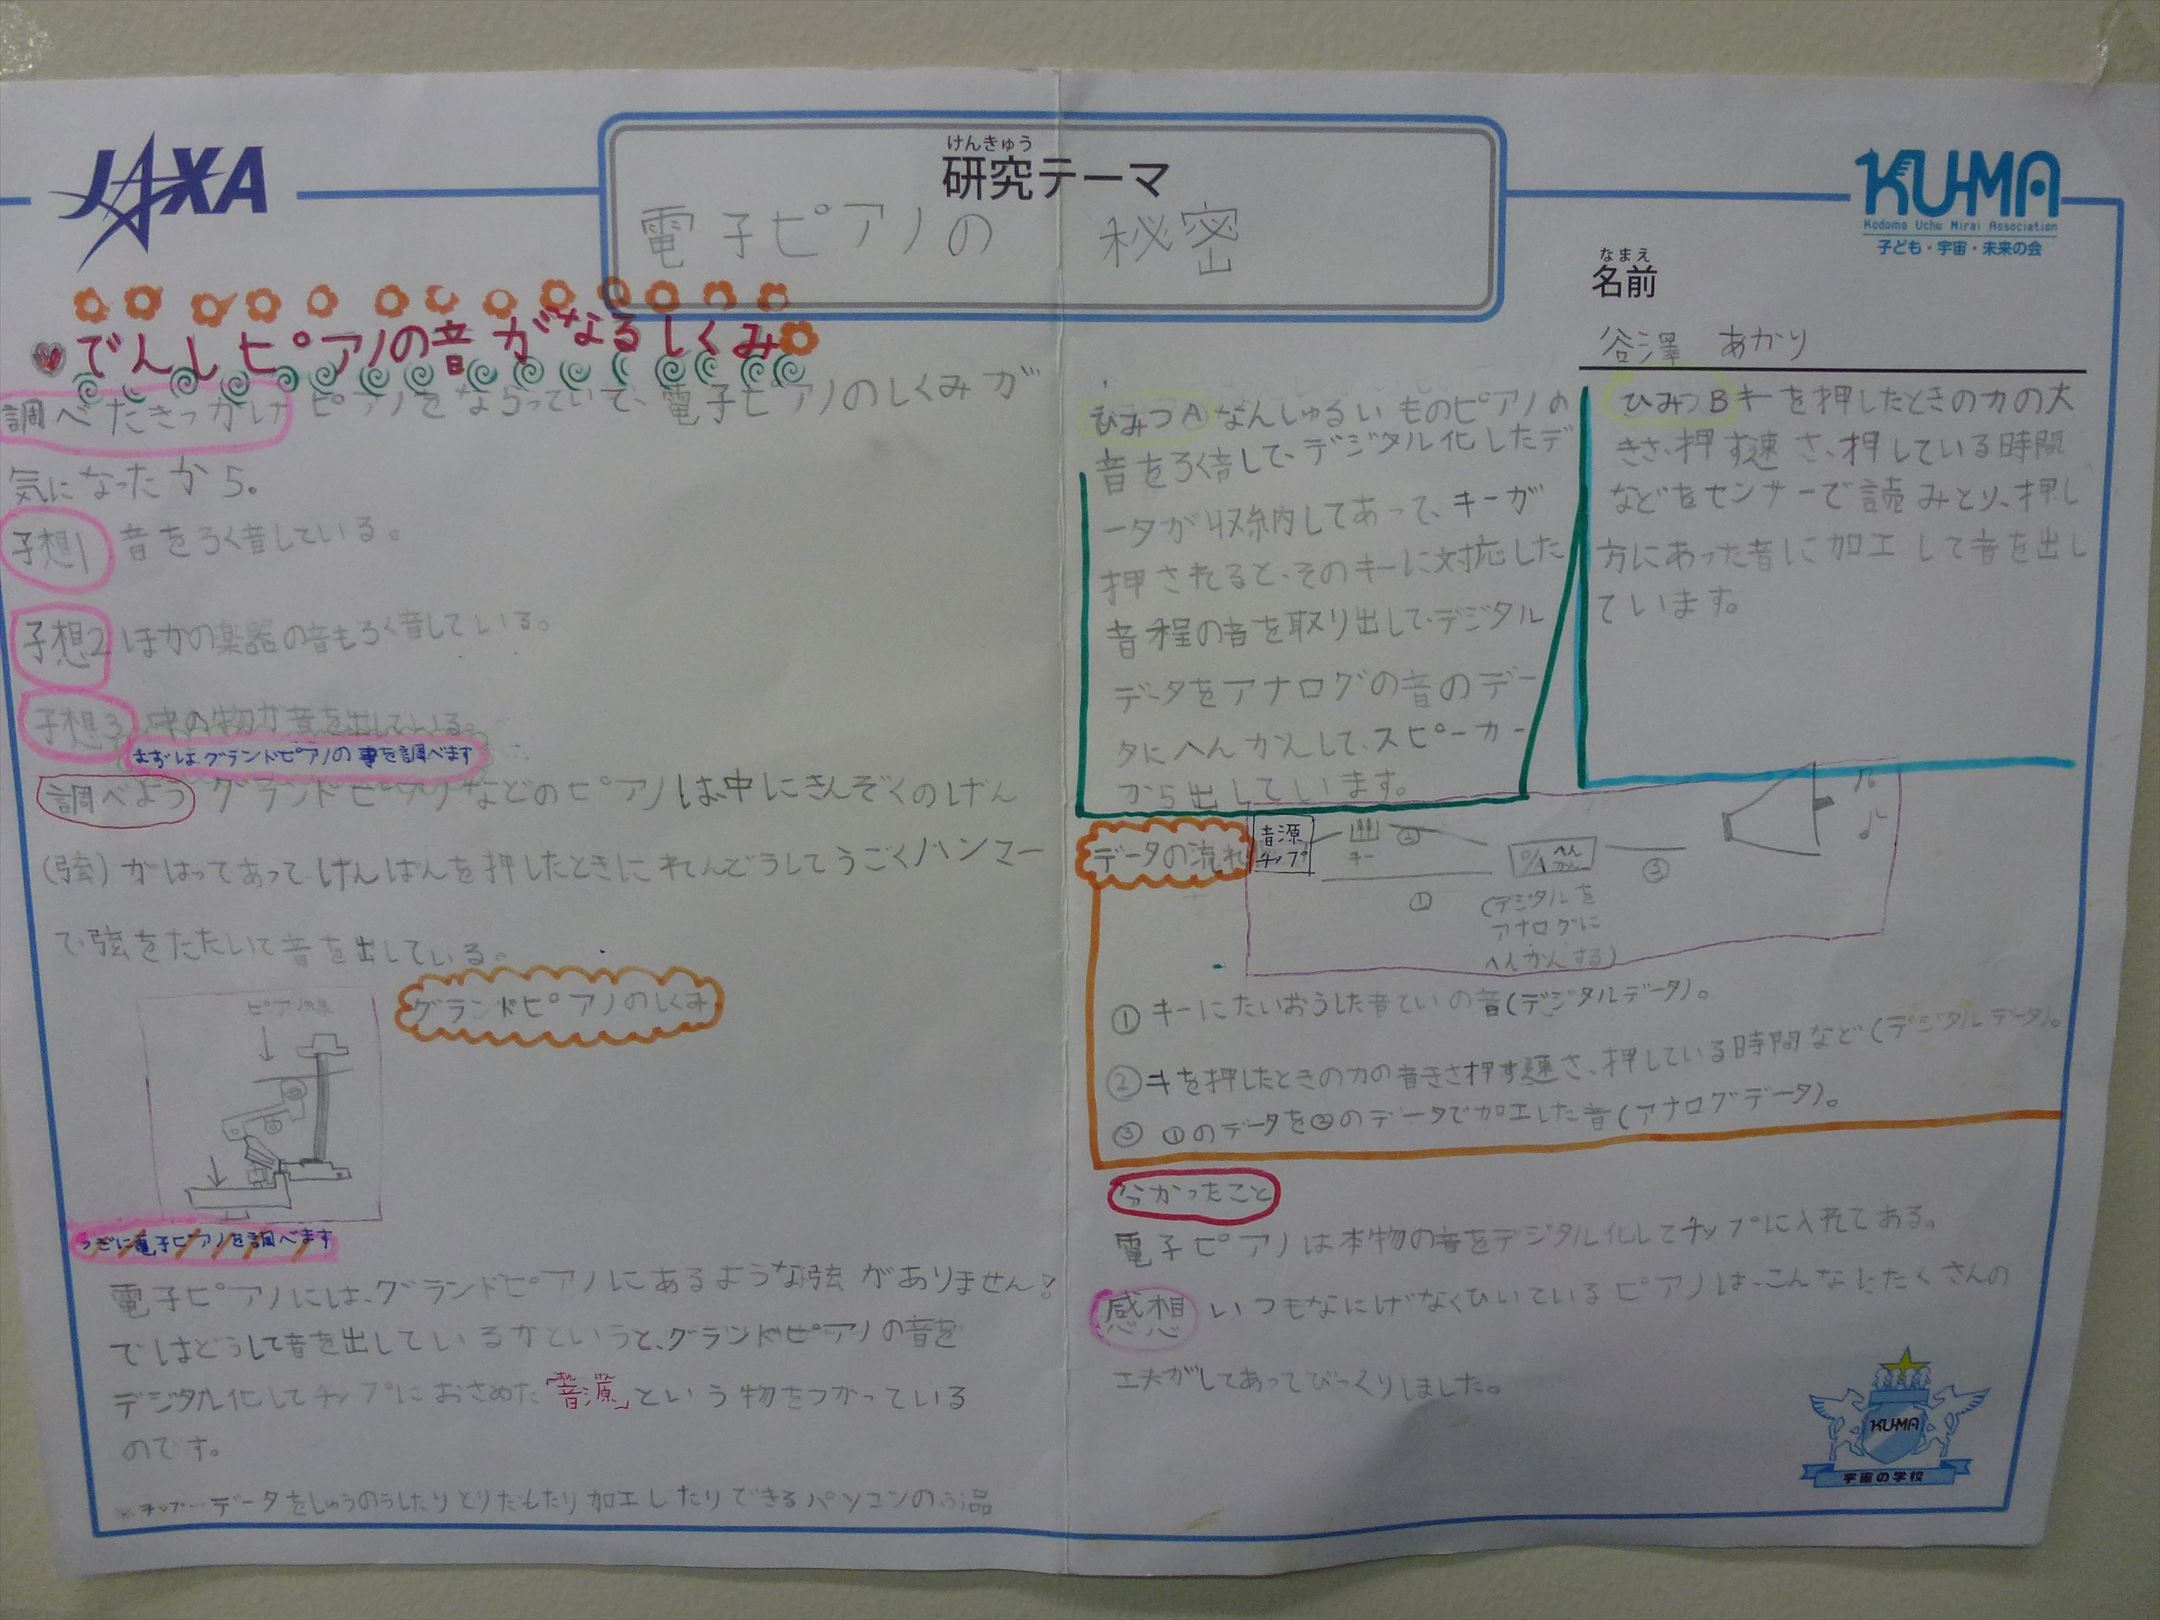 JAXA
けんきゅう
研究テーマ
電子ピアノの 秘密
KUMA
Kodomo Uchu Mirai Association
子ども・宇宙・未来の会
なまえ
名前
谷澤 あかり
でんしピアノの音がなるしくみ
調べたきっかけ ピアノをならっていて、電子ピアノのしくみが
気になったから。
予想1 音をろく音している。
予想2 ほかの楽器の音もろく音している。
予想3 中の物が音を出している。
まずはグランドピアノの事を調べます
調べよう グランドピアノなどのピアノは、中にきんぞくのげん
(弦)がはってあって、けんばんを押したときにれんどうしてうごくハンマー
で弦をたたいて音を出している。
グランドピアノのしくみ
つぎに電子ピアノを調べます
電子ピアノには、グランドピアノにあるような弦がありません!
ではどうして音を出しているかというと、グランドピアノの音を
デジタル化してチップにおさめた「音源」という物をつかっている
のです。
※チップ…データをしゅうのうしたりとりだしたり加工したりできるパソコンのぶ品
ひみつA なんしゅるいものピアノの
音をろく音して、デジタル化したデ
ータが収納してあって、キーが
押されると、そのキーに対応した
音程の音を取り出して、デジタル
データをアナログの音のデー
タにへんかんして、スピーカー
から出しています。
ひみつB キーを押したときの力の大
きさ、押す速さ、押している時間
などをセンサーで読みとり、押し
方にあった音に加工して音を出し
ています。
データの流れ
音源
チップ
キー
②
D/Aへん
かん
③
①
(デジタルを
アナログに
へんかんする)
①キーにたいおうした音ていの音(デジタルデータ)。
②キを押したときの力の音きさ押す速さ、押している時間など(デジタルデータ)。
③ ①のデータを②のデータで加工した音(アナログデータ)。
分かったこと
電子ピアノは本物の音をデジタル化してチップに入れてある。
感想 いつもなにげなくひいているピアノは、こんなにたくさんの
工夫がしてあってびっくりしました。
KUMA
宇宙の学校